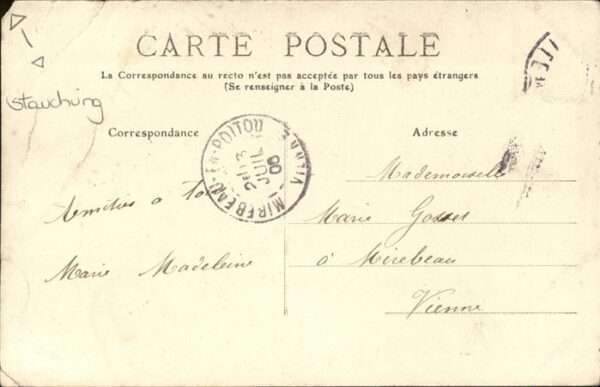 CARTE POSTALE
La Correspondance au recto n'est pas acceptée par tous les pays étrangers
(Se renseigner à la Poste)
Stauchung
Correspondance
Adresse
MIREBEAU-EN-POITOU
VIENNE
JUIL
Mademoiselle
Amitiés à
Marie
à Mirebeau
Marie Madeleine
Vienne